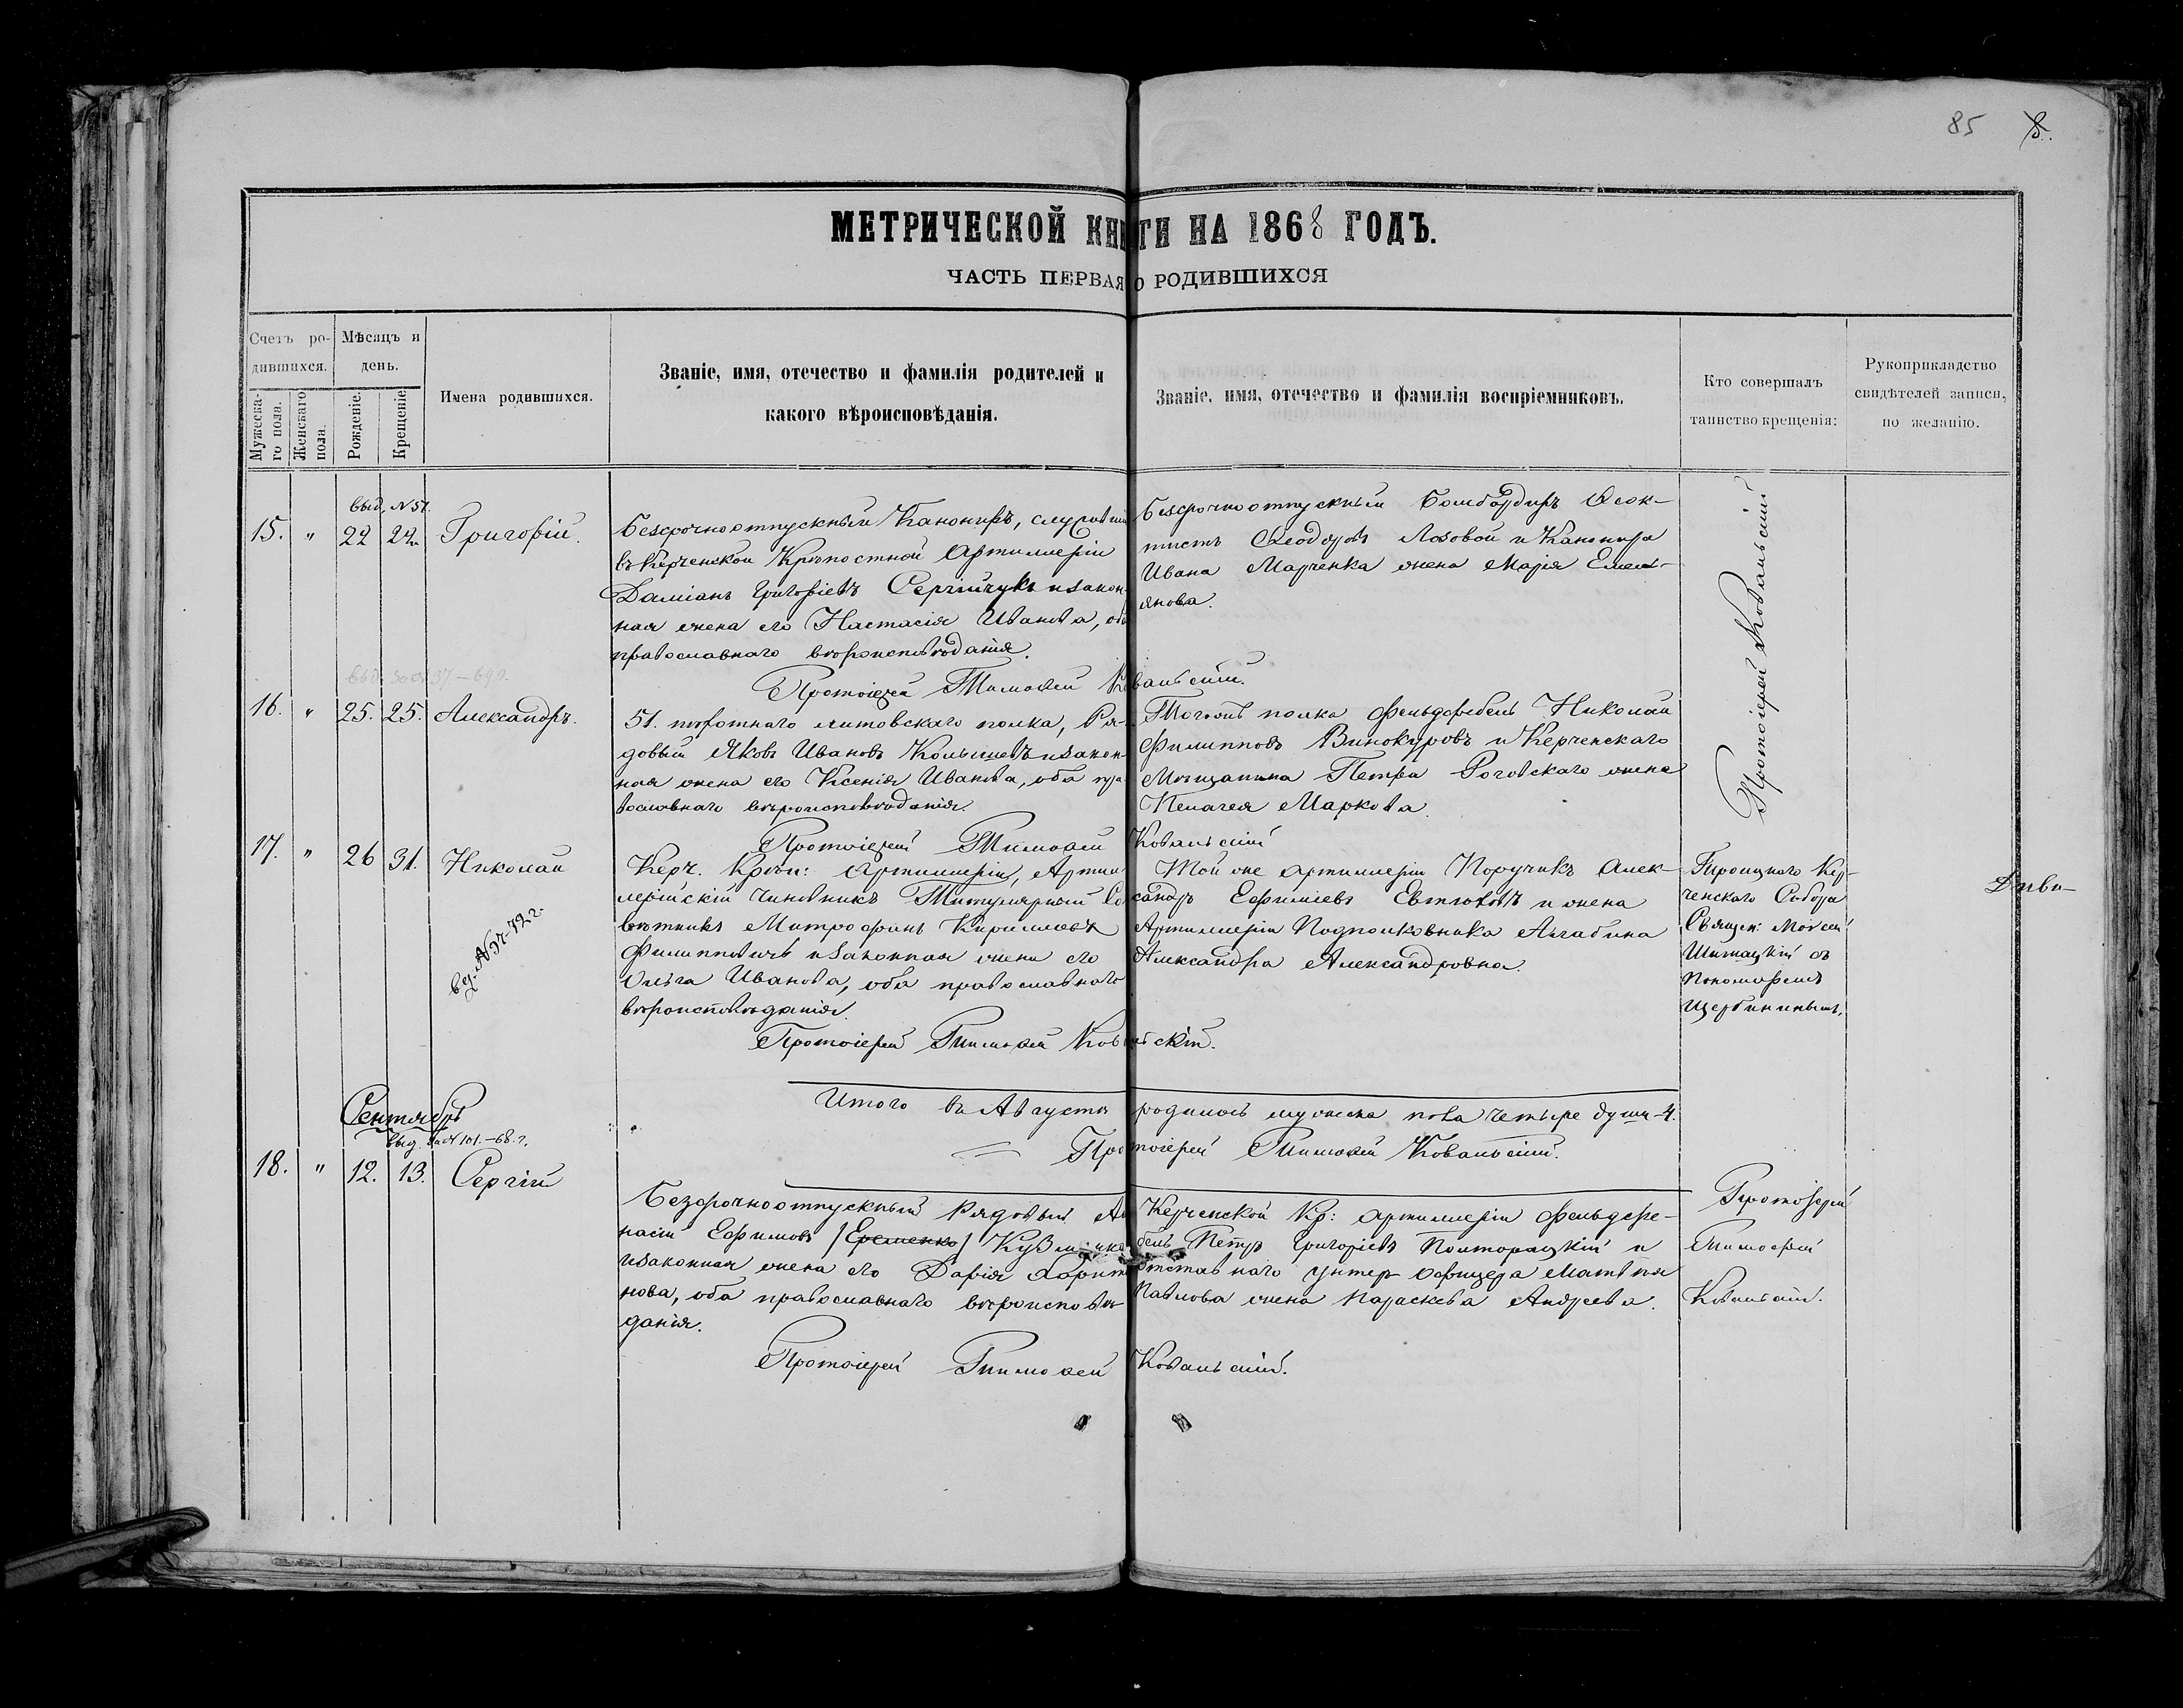 85 8.
МЕТРИЧЕСКОЙ КНИГИ НА 1868 ГОДЪ.
ЧАСТЬ ПЕРВАЯ О РОДИВШИХСЯ
Счетъ ро-
дившихся.
Мужеска-
го пола.
Женскаго
пола.
Мѣсяцъ и
день.
Рожденіе.
Крещеніе
Имена родившихся.
Званіе, имя, отечество и фамилія родителей и
какого вѣроисповѣданія.
Званіе, имя, отечество и фамилія воспріемниковъ.
Кто совершалъ
таинство крещенія:
Рукоприкладство
свидѣтелей записи,
по желанію.
выд. N 51.
15. " 22 22. Григорій.
Безсрочноотпускный Канониръ, служившій
въ Керченской Крѣпостной Артиллеріи
Даміанъ Григорьевъ Сергійчукъ и закон-
ная жена его Настасія Иванова, оба
православнаго вѣроисповѣданія.
Безсрочноотпускный Бомбардиръ Ѳеок-
тистъ Ѳеодоровъ Лозовой и Канонира
Ивана Марченка жена Марія Емель-
янова.
Протоіерей Тимоѳей Ковальскій.
Протоіерей Ковальскій
16. " 25. 25. Александръ.
51. пѣхотнаго литовскаго полка, Ря-
довый Яковъ Ивановъ и закон-
ная жена его Ксенія Иванова, оба пра-
вославнаго вѣроисповѣданія.
Тогожъ полка Фельдфебель Николай
Филипповъ Винокуровъ и Керченскаго
Мѣщанина Петра Роговскаго жена
Пелагея Маркова.
Протоіерей Тимоѳей Ковальскій
17. " 26 31. Николай
выд. N 37-72 г.
Керч. Крѣп: Артиллеріи, Артил-
лерійскій Чиновникъ Титулярный Со-
вѣтникъ Митрофанъ Кирилловъ
Филипповичъ и законная жена его
Ольга Иванова, оба православнаго
вѣроисповѣданія.
Той же артиллеріи Поручикъ Алек-
сандръ Ефиміевъ Евтюховъ и жена
Артиллеріи Подполковника
Александра Александровна.
Троицкаго Кер-
ченскаго Собора
Священ: Моисей
съ
Пономаремъ
Щербининымъ.
Протоіерей Тимоѳей Ковальскій.
Итого въ Августѣ родилось мужеска пола четыре душъ-4.
Протоіерей Тимоѳей Ковальскій.
Сентябрь
выд. за N 101.-68. г.
18. " 12. 13. Сергій
Безсрочноотпускный Рядовый
Ефимовъ /Еременко/
и законная жена его Дарія Харито-
нова, оба православнаго вѣроисповѣ-
данія.
Керченской Кр: артиллеріи Фельдфе-
бель Петръ Григорьевъ Полторацкій и
отставнаго унтер-офицера Матвѣя
Павлова жена Параскева Андреева.
Протоіерей
Тимоѳей
Ковальскій.
Протоіерей Тимоѳей Ковальскій.